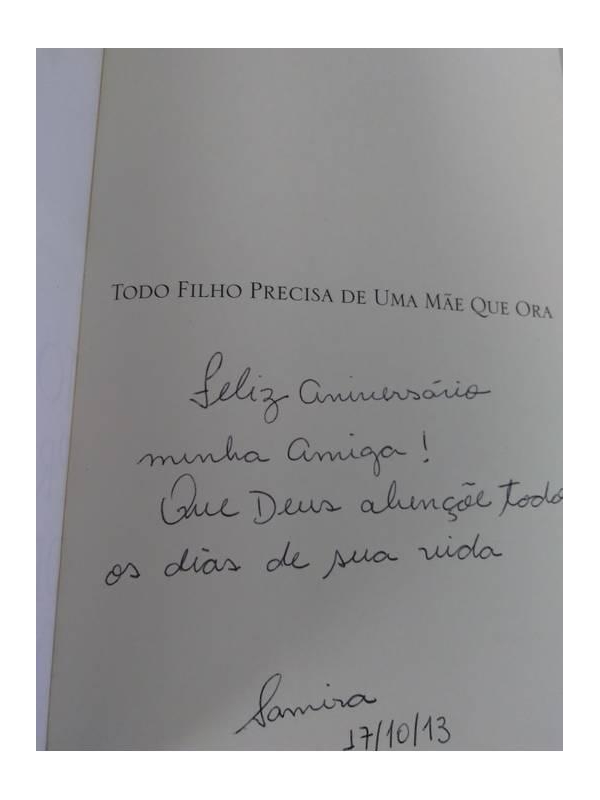 TODO FILHO PRECISA DE UMA MÃE QUE ORA
Feliz aniversário
minha amiga!
Que Deus abençõe todo
os dias de sua vida
Samira
17/10/13